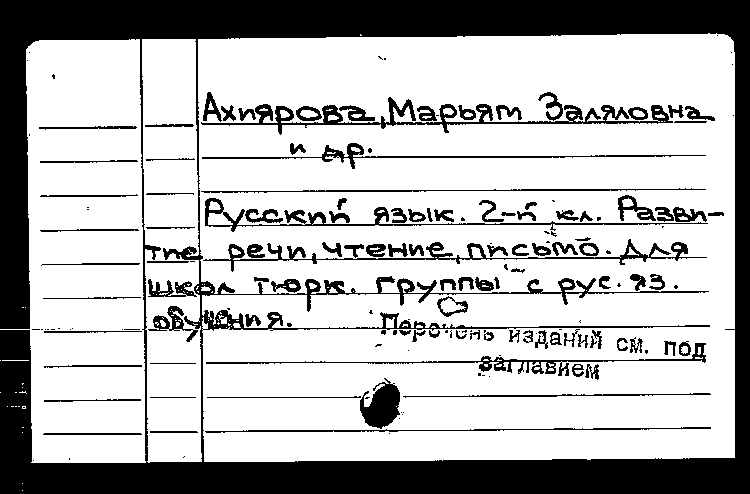 Ахиярова, Марьям Заляловна
и др.
Русский язык. 2-й кл. Разви-
тие речи, чтение, письмо. Для
школ тюрк. группы с рус. яз.
обучения.
Перечень изданий см. под
заглавием